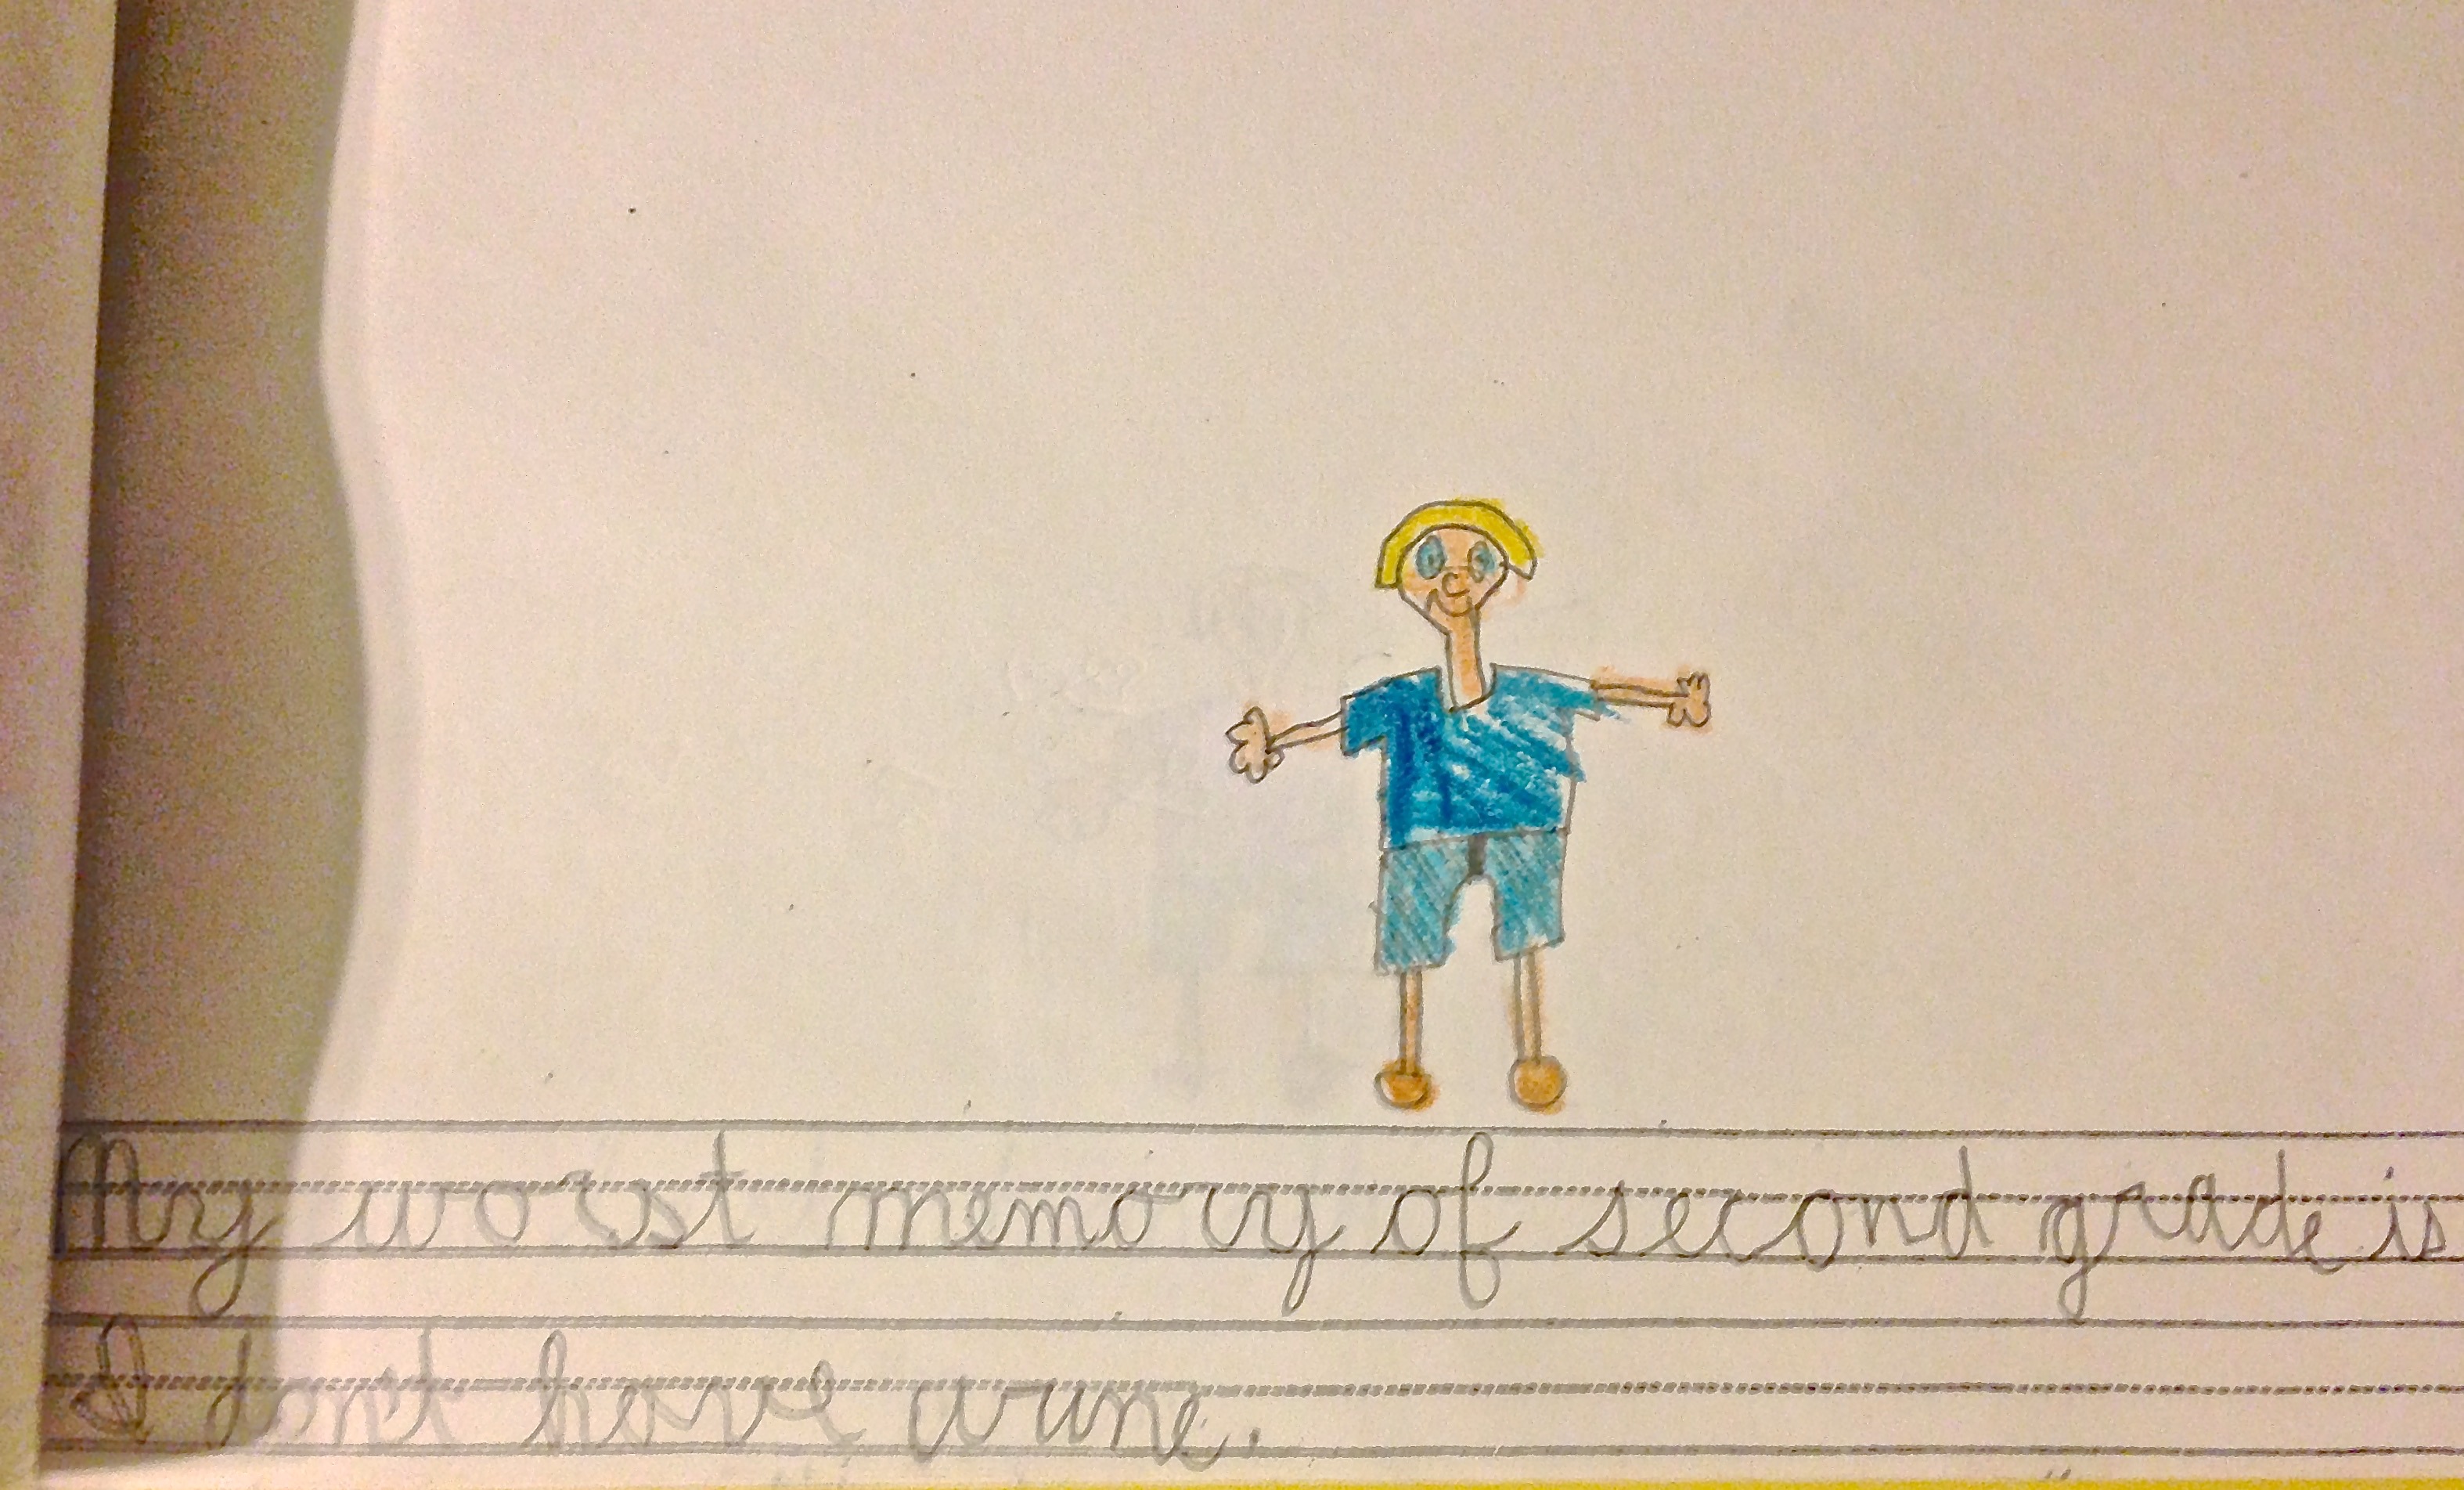 My worst memory of second grade is
I dont have wune.